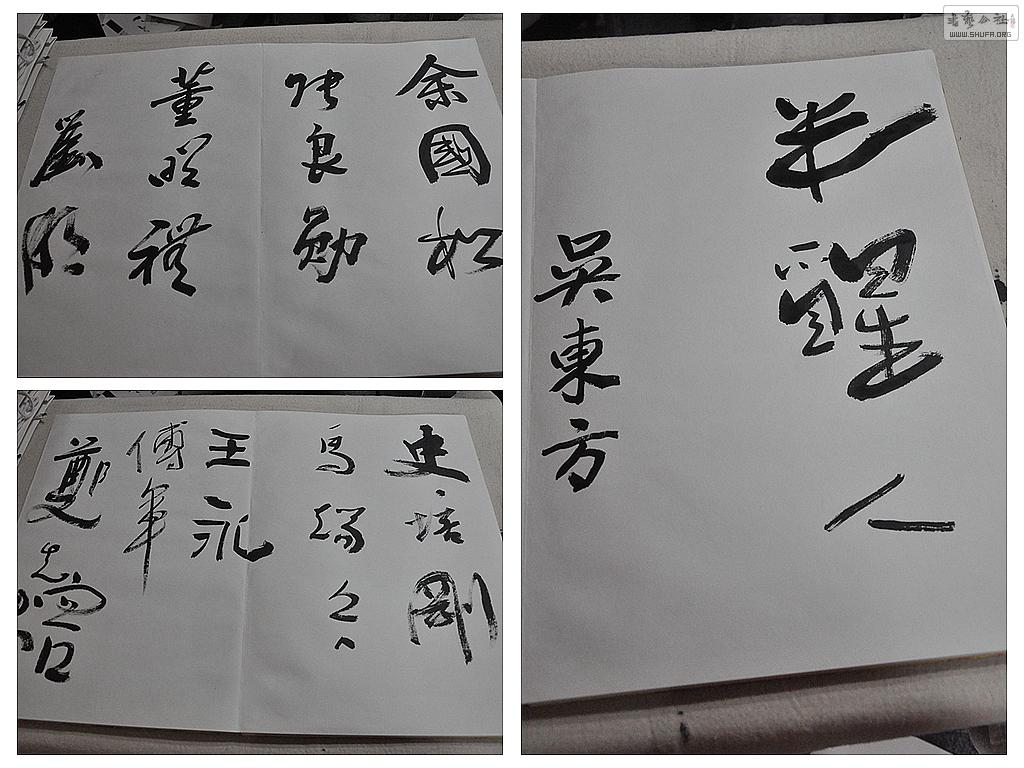 余國松
張良勳
董明禮
嚴順
史培剛
馬瑞
王永
傅军
鄭志
半醒人
吳東方
書藝公社
WWW.SHUFA.ORG